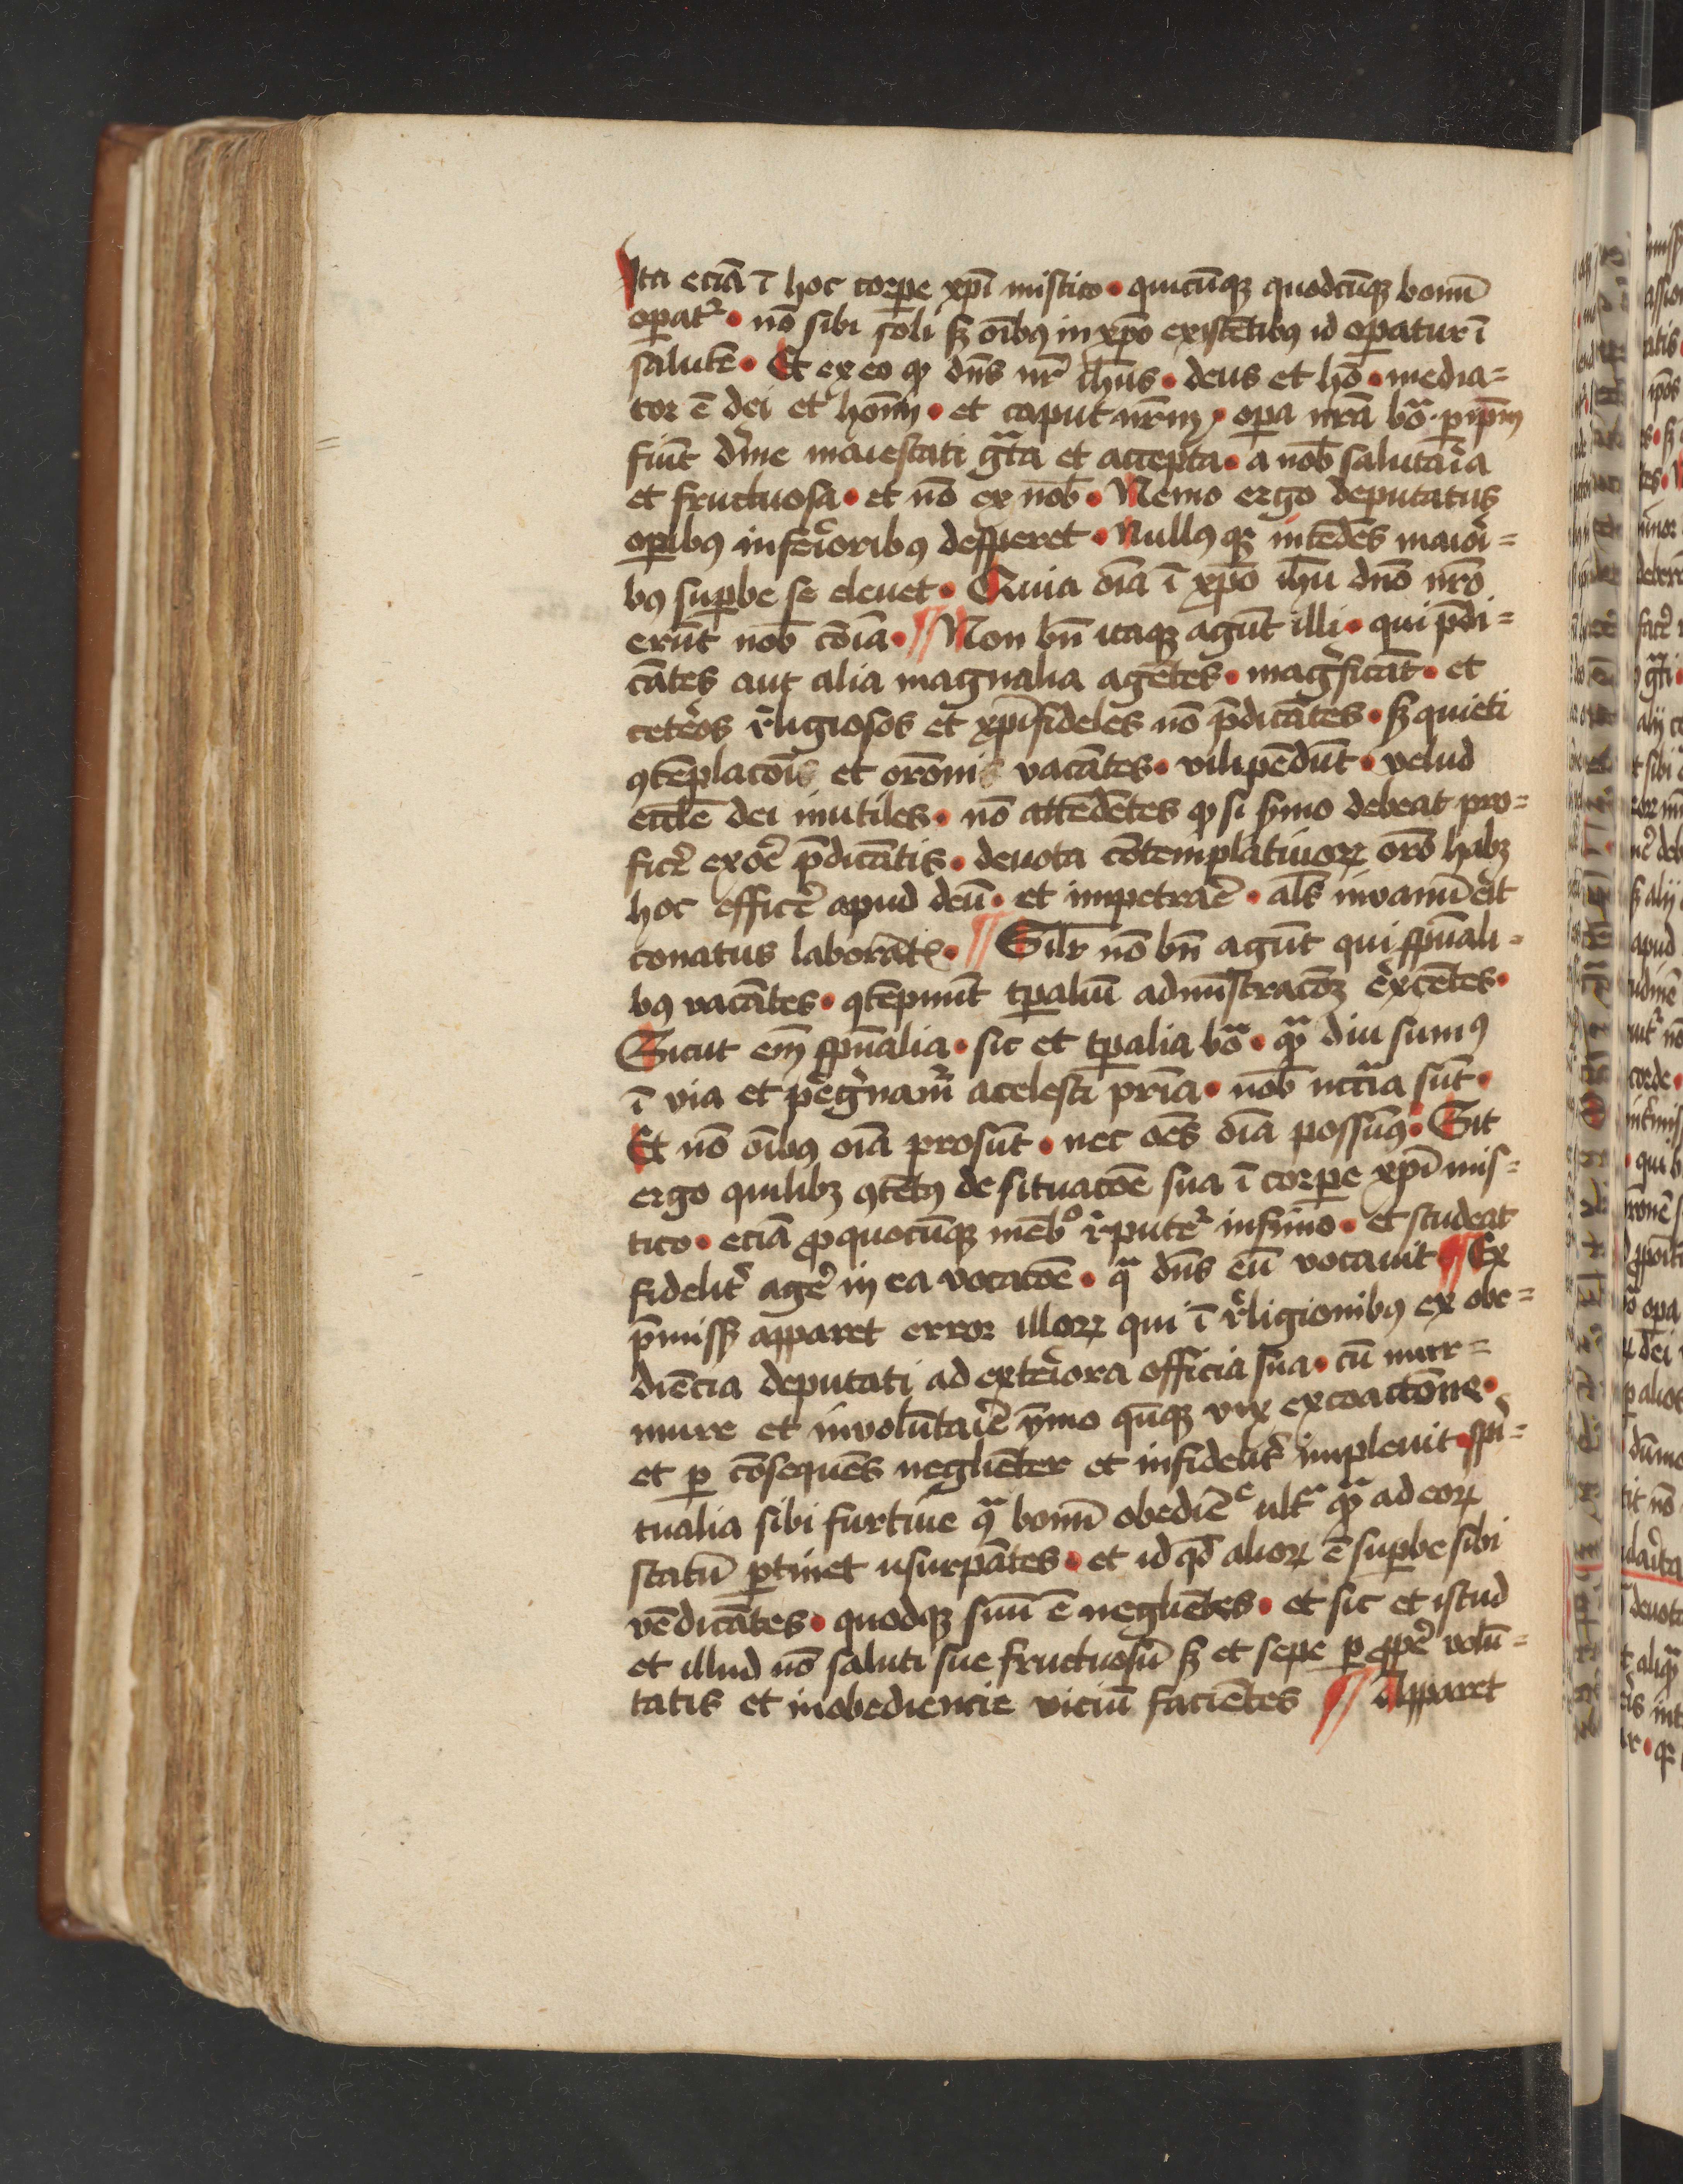 Ita eciā ī hoc corꝑe xp̄i mistico · quicūqꝫ quodcūqꝫ bonū
oꝑat᷑ · nō sibi soli sꝫ oībꝯ in xp̄o existētibꝯ id oꝑatur ī
salutē · Et ex eo ꝙ dn̄s nr̄ ihūs · deus et hō · media=
tor ē dei et hoīm · et caput nrm̄ · oꝑa nrā bōa · ꝑ ip̄m
fiūt dīne maiestati gͣta et accepta · a nob̄ salutaīa
et fructuosa · et nō ex nob̄ · Nemo ergo deputatus
oꝑibꝯ inferioribꝯ desperet · Nullꝯ qꝫ intēdēs maiori=
bꝯ suꝑbe se eleuet · Quia oīa ī xp̄o ihū dn̄o nr̄o
erūt nob̄ cōia · ¶ Non bn̄ itaqꝫ agūt illi · qui p̄di=
cātes aut alia magnalia agētes · magͥficāt · et
ceteros religiosos et xp̄ifideles nō p̄dicātes · sꝫ quieti
ꝯtēplacōis et orōnis vacātes · vilipēdūt · velud
eccl̄e dei inutiles · nō attēdētes ꝙ si sermo debeat pro=
ficere ex ore p̄dicātis · devota cōtemplatiuoꝝ orō habꝫ
hoc efficere apud deū · et impetrare · al̄s invanū erit
conatus laborātis · ¶ Sil̄r nō bn̄ agūt qui spūali=
bꝯ vacātes · ꝯtēpnūt tꝑaliū administracōꝫ exercētes ·
Sicut em̄ spūalia · sic et tꝑalia bōa · qͣ diu sumꝯ
ī via et peregͥnamur a celesti pr̄ia · nob̄ nccīa sūt ·
Et nō oībꝯ oīa prosūt · nec oēs oīa possūꝯ · Sit
ergo quilibꝫ ꝯtētꝯ de situacōe sua ī corꝑe xp̄i mis=
tico · eciā ꝓ quocūqꝫ mēbͦ reputet᷑ infimo · et studeat
fidelit᷑ agere in ea vocacōe · qͣ dn̄s eū vocauit ¶ Ex
p̄missꝭ apparet error illoꝝ qui ī religionibꝯ ex obe=
diēcia deputati ad exteriora officia sua · cū mur=
mure et involūtarie ymo qn̄qꝫ vix ex coactōne ·
et ꝑ cōsequēs negliēter et infidelit᷑ impleuit · spi=
tualia sibi furtiue qͣ bonū obediēͤ ultͣ qͣ ad eoꝝ
statū ꝑtinet usurpātes · et id qd̄ alioꝝ ē suꝑbe sibi
vēdicātes · quodqꝫ suū ē negliētes · et sic et istud
et illud nō saluti sue fructuosū sꝫ et sepe ꝑ ꝓpͥe volū=
tatis et inobediencie viciū faciētes ¶ Apparet